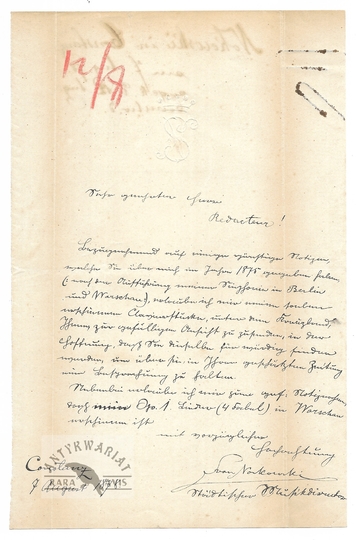 12/8
Sehr geehrter Herr
Redacteur!
Bezugnehmend auf einige günstige Notizen,
welche Sie über mich im Jahre 1875 gegeben haben
(nach der Aufführung meiner Sinfonie in Berlin
und Warschau), erlaube ich mir meine soeben
erschienenen Clavierstücke, unter dem Kreuzband,
Ihnen zur gefälligen Ansicht zu zusenden, in der
Hoffnung, daß Sie dieselbe für würdig finden
werden, um über sie in Ihrer geschätzten Zeitung
eine Besprechung zu halten.
Nebenbei erlaube ich mir eine gef. Notiznehmen,
daß Op. 1. Lieder (4 Hefte) in Warschau
erschienen ist
mit vorzüglicher
Hochachtung
Noskowski
Städtischer Musikdirector
7 August
ANTYKWARIAT
RARA AVIS